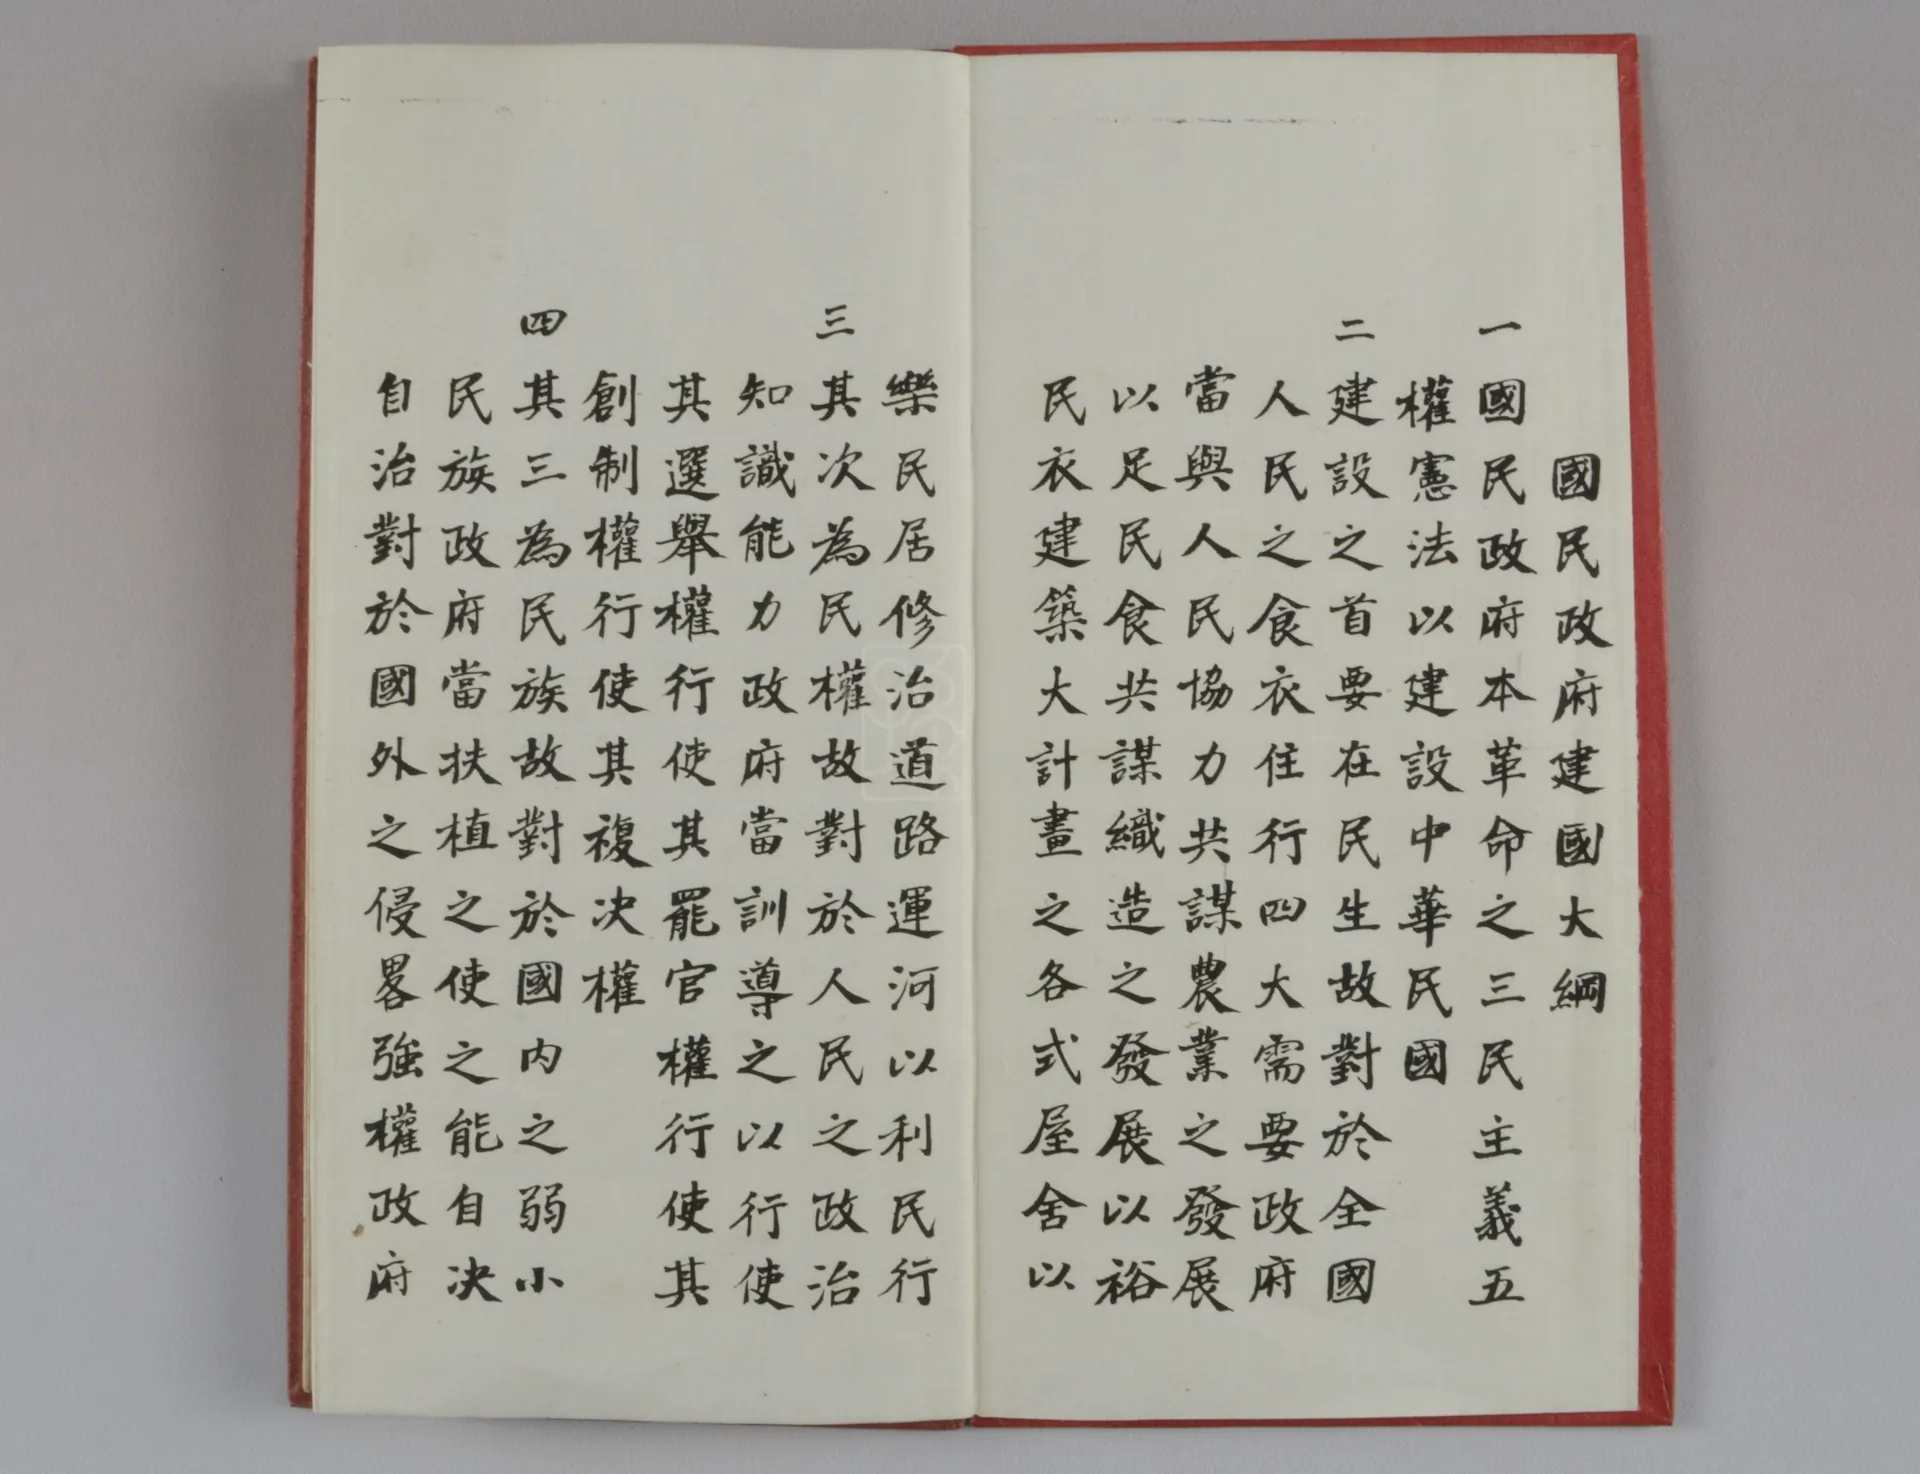 國民政府建國大綱
一國民政府本革命之三民主義五
權憲法以建設中華民國
二建設之首要在民生故對於全國
人民之食衣住行四大需要政府
當與人民協力共謀農業之發展
以足民食共謀織造之發展以裕
民衣建築大計畫之各式屋舍以
樂民居修治道路運河以利民行
三其次為民權故對於人民之政治
知識能力政府當訓導之以行使
其選舉權行使其罷官權行使其
創制權行使其複决權
四其三為民族故對於國內之弱小
民族政府當扶植之使之能自决
自治對於國外之侵畧強權政府